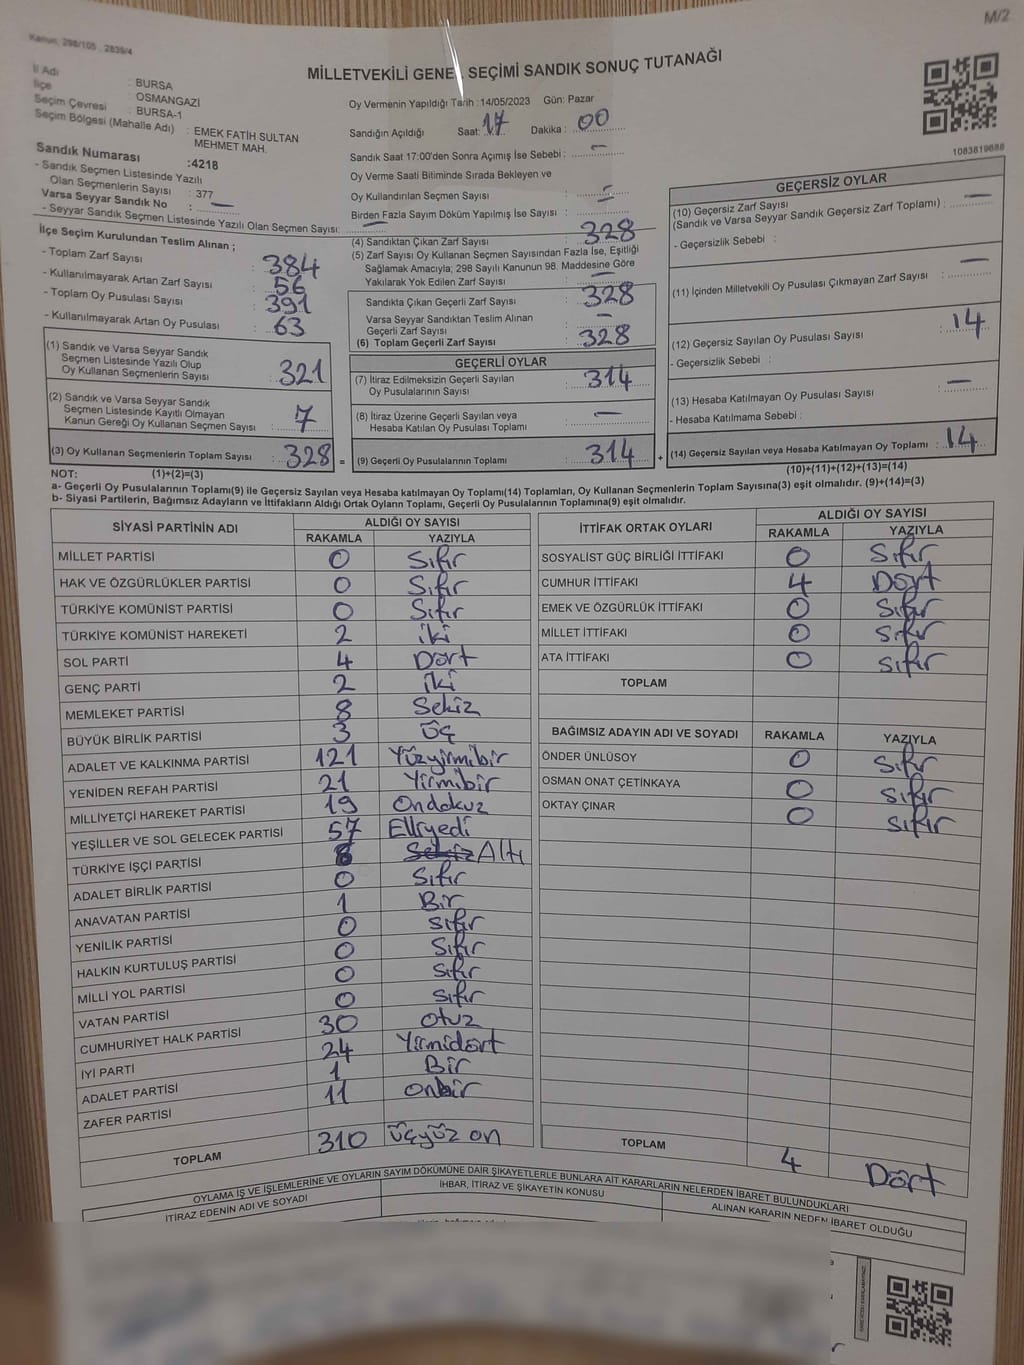 M/2
Kanun; 298/105 , 2839/4
MİLLETVEKİLİ GENEL SEÇİMİ SANDIK SONUÇ TUTANAĞI
İl Adı : BURSA
İlçe : OSMANGAZİ
Seçim Çevresi : BURSA-1
Seçim Bölgesi (Mahalle Adı) : EMEK FATİH SULTAN
MEHMET MAH.
Sandık Numarası :4218
- Sandık Seçmen Listesinde Yazılı
Olan Seçmenlerin Sayısı : 377
Varsa Seyyar Sandık No : —
- Seyyar Sandık Seçmen Listesinde Yazılı Olan Seçmen Sayısı: —
İlçe Seçim Kurulundan Teslim Alınan ;
- Toplam Zarf Sayısı : 384
- Kullanılmayarak Artan Zarf Sayısı : 56
- Toplam Oy Pusulası Sayısı : 391
- Kullanılmayarak Artan Oy Pusulası : 63
(1) Sandık ve Varsa Seyyar Sandık
Seçmen Listesinde Yazılı Olup
Oy Kullanan Seçmenlerin Sayısı : 321
(2) Sandık ve Varsa Seyyar Sandık
Seçmen Listesinde Kayıtlı Olmayan
Kanun Gereği Oy Kullanan Seçmen Sayısı : 7
(3) Oy Kullanan Seçmenlerin Toplam Sayısı : 328 =
Oy Vermenin Yapıldığı Tarih :14/05/2023 Gün: Pazar
Sandığın Açıldığı Saat: 17 Dakika : 00
Sandık Saat 17:00'den Sonra Açımış İse Sebebi : —
Oy Verme Saati Bitiminde Sırada Bekleyen ve
Oy Kullandırılan Seçmen Sayısı : —
Birden Fazla Sayım Döküm Yapılmış İse Sayısı : —
(4) Sandıktan Çıkan Zarf Sayısı : 328
(5) Zarf Sayısı Oy Kullanan Seçmen Sayısından Fazla İse, Eşitliği
Sağlamak Amacıyla; 298 Sayılı Kanunun 98. Maddesine Göre
Yakılarak Yok Edilen Zarf Sayısı : —
Sandıkta Çıkan Geçerli Zarf Sayısı : 328
Varsa Seyyar Sandıktan Teslim Alınan
Geçerli Zarf Sayısı : —
(6) Toplam Geçerli Zarf Sayısı : 328
GEÇERLİ OYLAR
(7) İtiraz Edilmeksizin Geçerli Sayılan
Oy Pusulalarının Sayısı : 314
(8) İtiraz Üzerine Geçerli Sayılan veya
Hesaba Katılan Oy Pusulası Toplamı : —
(9) Geçerli Oy Pusulalarının Toplamı : 314 +
1083819688
GEÇERSİZ OYLAR
(10) Geçersiz Zarf Sayısı
(Sandık ve Varsa Seyyar Sandık Geçersiz Zarf Toplamı) : —
- Geçersizlik Sebebi :
(11) İçinden Milletvekili Oy Pusulası Çıkmayan Zarf Sayısı : —
(12) Geçersiz Sayılan Oy Pusulası Sayısı : 14
- Geçersizlik Sebebi :
(13) Hesaba Katılmayan Oy Pusulası Sayısı : —
- Hesaba Katılmama Sebebi :
(14) Geçersiz Sayılan veya Hesaba Katılmayan Oy Toplamı : 14
NOT: (1)+(2)=(3) (10)+(11)+(12)+(13)=(14)
a- Geçerli Oy Pusulalarının Toplamı(9) ile Geçersiz Sayılan veya Hesaba katılmayan Oy Toplamı(14) Toplamları, Oy Kullanan Seçmenlerin Toplam Sayısına(3) eşit olmalıdır. (9)+(14)=(3)
b- Siyasi Partilerin, Bağımsız Adayların ve İttifakların Aldığı Ortak Oyların Toplamı, Geçerli Oy Pusulalarının Toplamına(9) eşit olmalıdır.
SİYASİ PARTİNİN ADI ALDIĞI OY SAYISI
RAKAMLA YAZIYLA
MİLLET PARTİSİ 0 Sıfır
HAK VE ÖZGÜRLÜKLER PARTİSİ 0 Sıfır
TÜRKİYE KOMÜNİST PARTİSİ 0 Sıfır
TÜRKİYE KOMÜNİST HAREKETİ 2 iki
SOL PARTİ 4 Dört
GENÇ PARTİ 2 iki
MEMLEKET PARTİSİ 8 Sekiz
BÜYÜK BİRLİK PARTİSİ 3 Üç
ADALET VE KALKINMA PARTİSİ 121 Yüzyirmibir
YENİDEN REFAH PARTİSİ 21 Yirmibir
MİLLİYETÇİ HAREKET PARTİSİ 19 Ondokuz
YEŞİLLER VE SOL GELECEK PARTİSİ 57 Elliyedi
TÜRKİYE İŞÇİ PARTİSİ 6 Sekiz Altı
ADALET BİRLİK PARTİSİ 0 Sıfır
ANAVATAN PARTİSİ 1 Bir
YENİLİK PARTİSİ 0 Sıfır
HALKIN KURTULUŞ PARTİSİ 0 Sıfır
MİLLİ YOL PARTİSİ 0 Sıfır
VATAN PARTİSİ 0 Sıfır
CUMHURİYET HALK PARTİSİ 30 otuz
İYİ PARTİ 24 Yirmidört
ADALET PARTİSİ 1 Bir
ZAFER PARTİSİ 11 onbir
TOPLAM 310 Üçyüz on
İTTİFAK ORTAK OYLARI ALDIĞI OY SAYISI
RAKAMLA YAZIYLA
SOSYALİST GÜÇ BİRLİĞİ İTTİFAKI 0 Sıfır
CUMHUR İTTİFAKI 4 Dört
EMEK VE ÖZGÜRLÜK İTTİFAKI 0 Sıfır
MİLLET İTTİFAKI 0 Sıfır
ATA İTTİFAKI 0 sıfır
TOPLAM
BAĞIMSIZ ADAYIN ADI VE SOYADI RAKAMLA YAZIYLA
ÖNDER ÜNLÜSOY 0 Sıfır
OSMAN ONAT ÇETİNKAYA 0 sıfır
OKTAY ÇINAR 0 sıfır
TOPLAM 4 Dört
OYLAMA İŞ VE İŞLEMLERİNE VE OYLARIN SAYIM DÖKÜMÜNE DAİR ŞİKAYETLERLE BUNLARA AİT KARARLARIN NELERDEN İBARET BULUNDUKLARI
İTİRAZ EDENİN ADI VE SOYADI İHBAR, İTİRAZ VE ŞİKAYETİN KONUSU ALINAN KARARIN NEDEN İBARET OLDUĞU